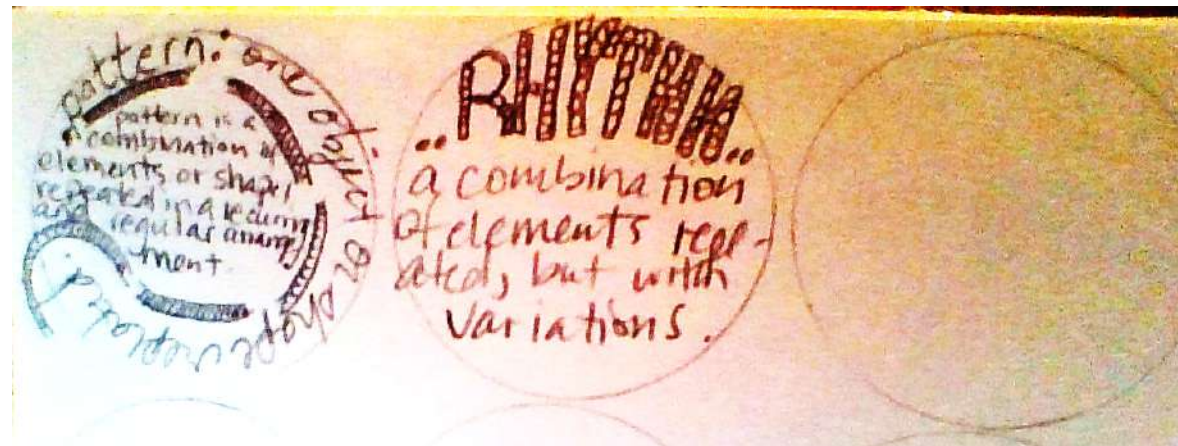 pattern: one object or shape repeated.
pattern is a
combination of
elements or shapes
repeated in a recurring
and regular arrange
ment.
RHYTHM
a combination
of elements repe-
ated, but with
variations.